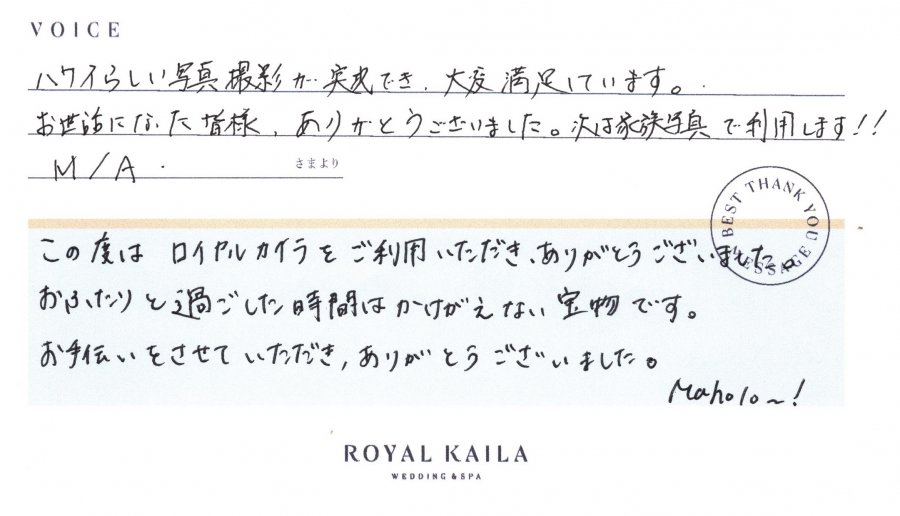 VOICE
ハワイらしい写真撮影が実現でき、大変満足しています。
お世話になった皆様、ありがとうございました。次は家族写真で利用します!!
M/A.
さまより
BEST THANK YOU MESSAGE
この度は ロイヤルカイラをご利用いただき、ありがとうございました。
おふたりと過ごした時間はかけがえない宝物です。
お手伝いをさせていただき、ありがとうございました。
Mahalo~!
ROYAL KAILA
WEDDING & SPA